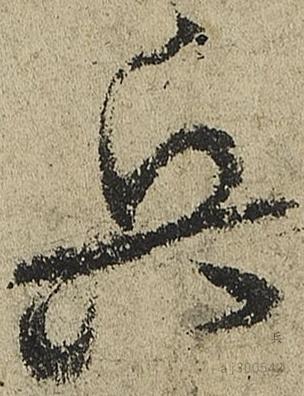 兵
兵
a j300540